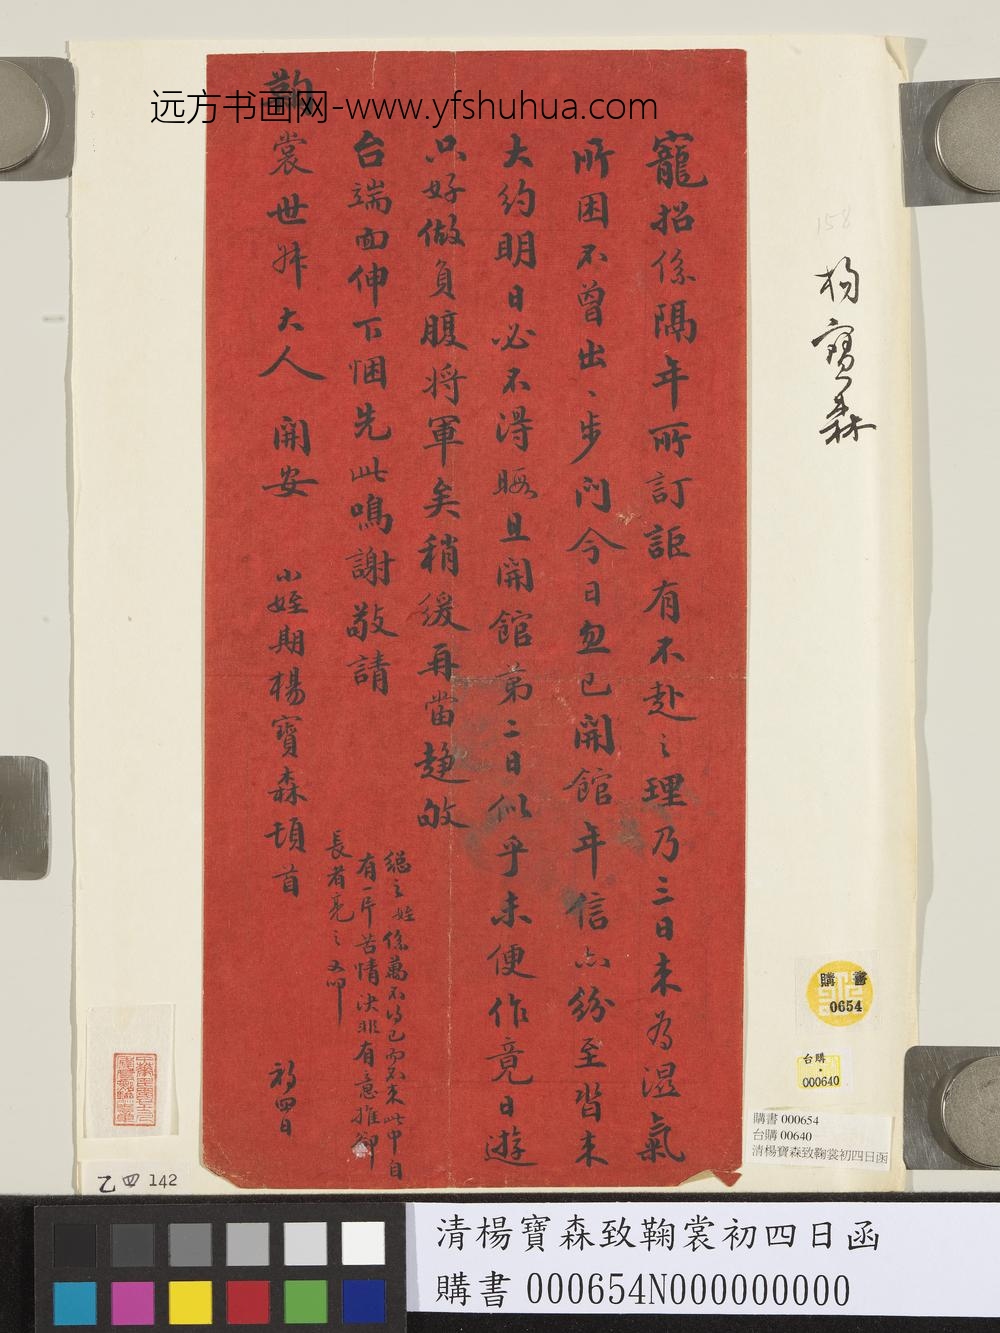 远方书画网-www.yfshuhua.com
寵招係隔年所訂詎有不赴之理乃三日來為濕氣
所困不曾出、步門今日忽已開館年信亦紛至皆未
大約明日必不得暇且開館第二日似乎未便作竟日遊
只好做負腹將軍矣稍緩再當趨敂
台端面伸下悃先此鳴謝敬請
鞠裳世丈大人 開安 小姪期楊寶森頓首
總之姪係萬不得已而不來此中自
有一片苦情決非有意推卻
長者亮之又叩
初四日
158
楊寶森
購書
0654
台購
000640
購書 000654
台購 00640
清楊寶森致鞠裳初四日函
乙四 142
清楊寶森致鞠裳初四日函
購書 000654N000000000